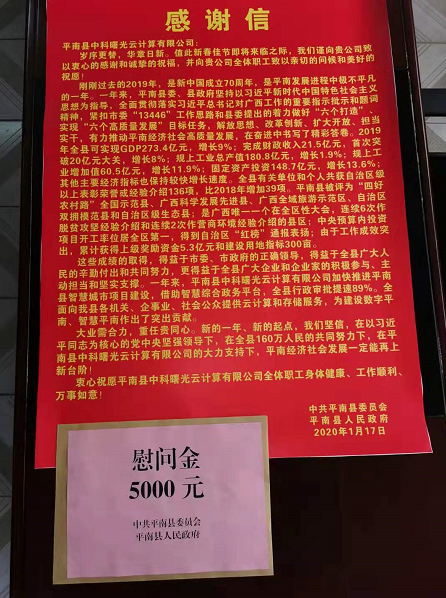 感谢信
平南县中科曙光云计算有限公司:
岁序更替,华章日新。值此新春佳节即将来临之际,我们谨向贵公司致
以衷心的感谢和诚挚的祝福,并向贵公司全体职工致以亲切的问候和美好的
祝愿!
刚刚过去的2019年,是新中国成立70周年,是平南发展进程中极不平凡
的一年。一年来,平南县委、县政府坚持以习近平新时代中国特色社会主义
思想为指导,全面贯彻落实习近平总书记对广西工作的重要指示批示和题词
精神,紧扣市委“13446”工作思路和县委提出的着力做好“六个打造”、
实现“六个高质量发展”目标任务,解放思想、改革创新、扩大开放、担当
实干,有力推动平南经济社会高质量发展,在奋进中书写了精彩答卷。2019
年全县可实现GDP273.4亿元,增长9%;完成财政收入21.5亿元,首次突
破20亿元大关,增长8%;规上工业总产值180.8亿元,增长1.9%;规上工
业增加值60.5亿元,增长11.9%;固定资产投资148.7亿元,增长13.6%;
其他主要经济指标也保持较快增长速度。全县有关单位和个人共获自治区级
以上表彰荣誉或经验介绍136项,比2018年增加39项。平南县被评为“四好
农村路”全国示范县、广西科学发展先进县、广西全域旅游示范区、自治区
双拥模范县和自治区级生态县;是广西唯一一个在全区性大会,连续6次作
脱贫攻坚经验介绍和连续2次作营商环境经验介绍的县区;中央预算内投资
项目开工率位居全区第一,得到自治区“红榜”通报表扬;由于工作成效突
出,累计获得上级奖励资金5.3亿元和建设用地指标300亩。
这些成绩的取得,得益于市委、市政府的正确领导,得益于全县广大人
民的辛勤付出和共同努力,更得益于全县广大企业和企业家的积极参与、主
动担当和坚实支撑。一年来,平南县中科曙光云计算有限公司加快推进平南
县智慧城市项目建设,借助智慧综合政务平台,全县行政审批提速89%。全
面向我县各机关、企事业、社会公众提供云计算和存储服务,为建设数字平
南、智慧平南作出了突出贡献。
大业需合力,重任贵同心。新的一年、新的起点,我们坚信,在以习近
平同志为核心的党中央坚强领导下,在全县160万人民的共同努力下,在平
南县中科曙光云计算有限公司的大力支持下,平南经济社会发展一定能再上
新台阶!
衷心祝愿平南县中科曙光云计算有限公司全体职工身体健康、工作顺利、
万事如意!
中共平南县委员会
平南县人民政府
2020年1月17日
慰问金
5000 元
中共平南县委员会
平南县人民政府